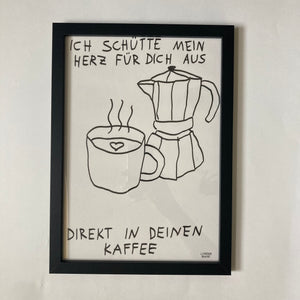 ICH SCHÜTTE MEIN
HERZ FÜR DICH AUS
DIREKT IN DEINEN
KAFFEE